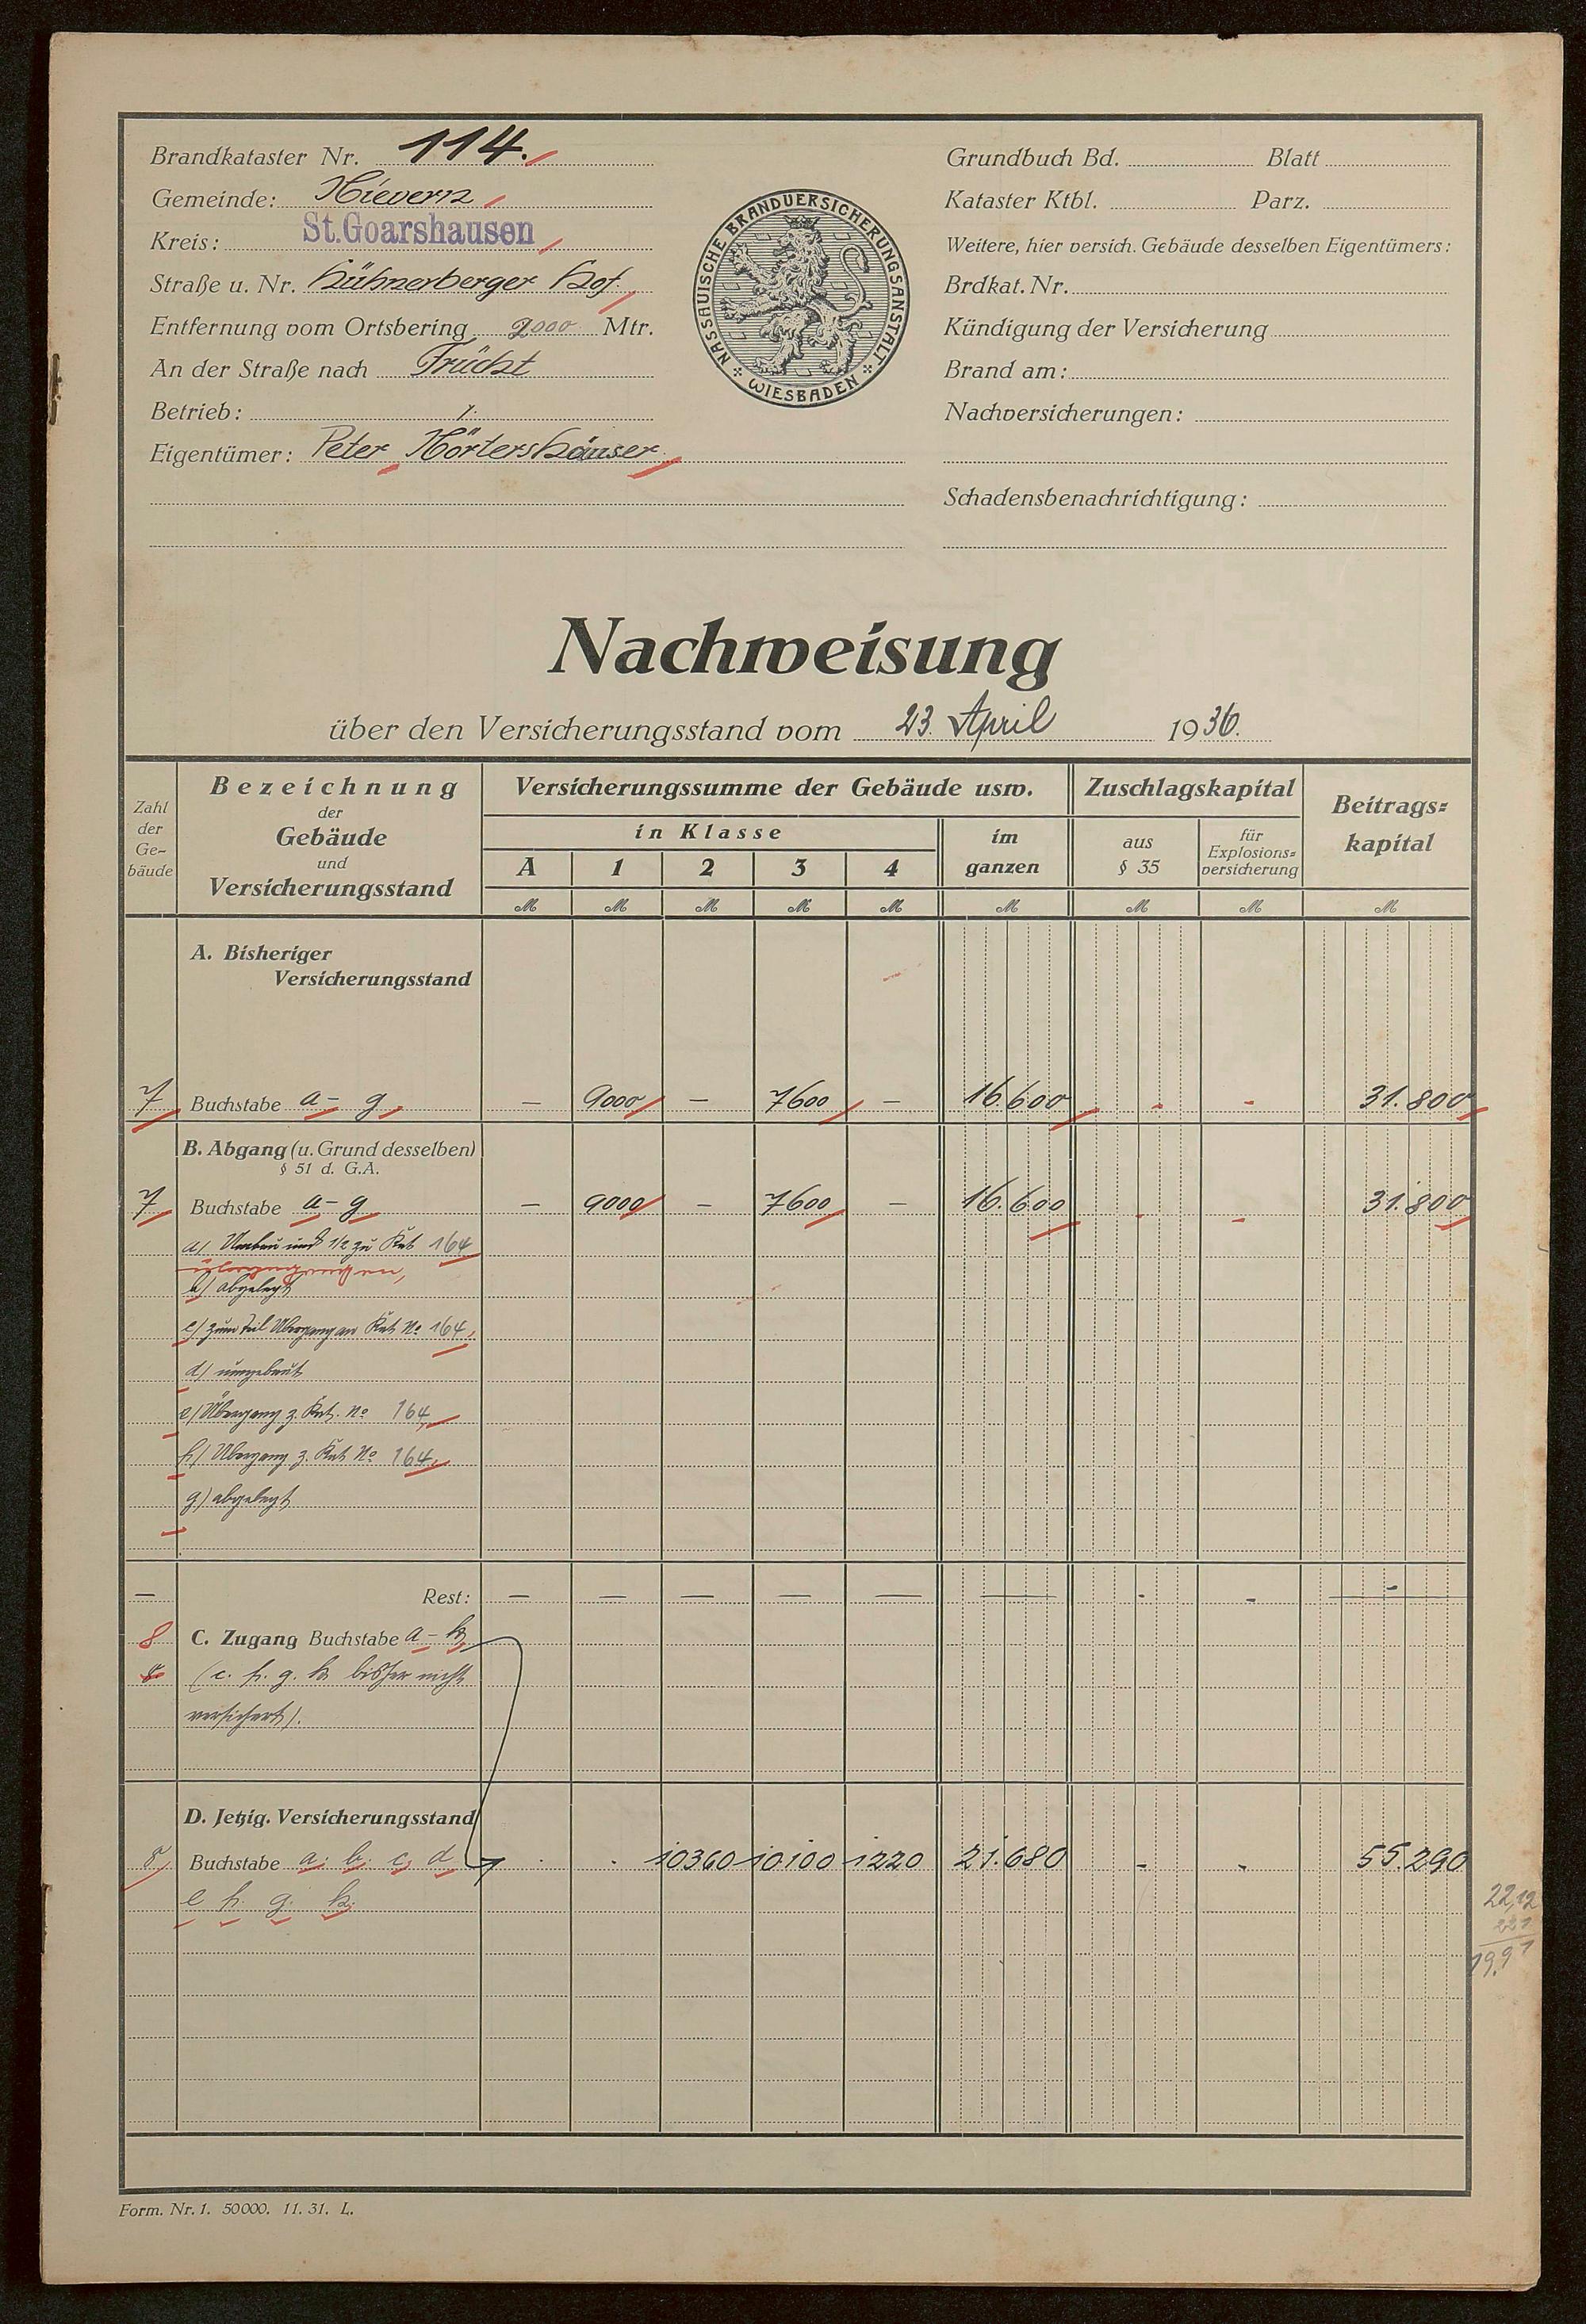 Brandkataster Nr. 114.
Gemeinde: Nievern
Kreis: St.Goarshausen
Straße u. Nr. Hühnerberger Hof.
Entfernung vom Ortsbering 2000 Mtr.
An der Straße nach Frücht
Betrieb: /.
Eigentümer: Peter Hörtershäuser
NASSAUISCHE BRANDVERSICHERUNGSANSTALT
WIESBADEN
Grundbuch Bd. Blatt
Kataster Ktbl. Parz.
Weitere, hier versich. Gebäude desselben Eigentümers:
Brdkat. Nr.
Kündigung der Versicherung
Brand am:
Nachversicherungen:
Schadensbenachrichtigung:
Nachweisung
über den Versicherungsstand vom 23. April 1936.
Zahl der Ge-bäude
Bezeichnung der Gebäude und Versicherungsstand
Versicherungssumme der Gebäude usw.
in Klasse
A 1 2 3 4
im ganzen
Zuschlagskapital
aus § 35
für Explosions=versicherung
Beitrags=kapital
M M M M M M M M M
A. Bisheriger
Versicherungsstand
7 Buchstabe a - g, — 9000 — 7600 — 16.600 - - 31.800
B. Abgang (u. Grund desselben)
§ 51 d. G.A.
7 Buchstabe a - g — 9000 — 7600 — 16.600 - - 31.800
a) Umbau und 1/2 zu Kat 164
übergegangen,
b) abgelegt
c) zum Teil Übergang an Kat No 164,
d) umgebaut
e) Übergang z. Kat. No 164,
f) Übergang z. Kat No 164,
g) abgelegt
— Rest: — — — — — — - - —
8 C. Zugang Buchstabe a - h,
8 (c. f. g. h bisher nicht
versichert).
D. Jetzig. Versicherungsstand
8 Buchstabe a. b. c, d . . 10360 10100 1220 21.680 - - 55.290
e f. g. h.
22,12
221
19,91
Form. Nr. 1. 50000. 11. 31. L.